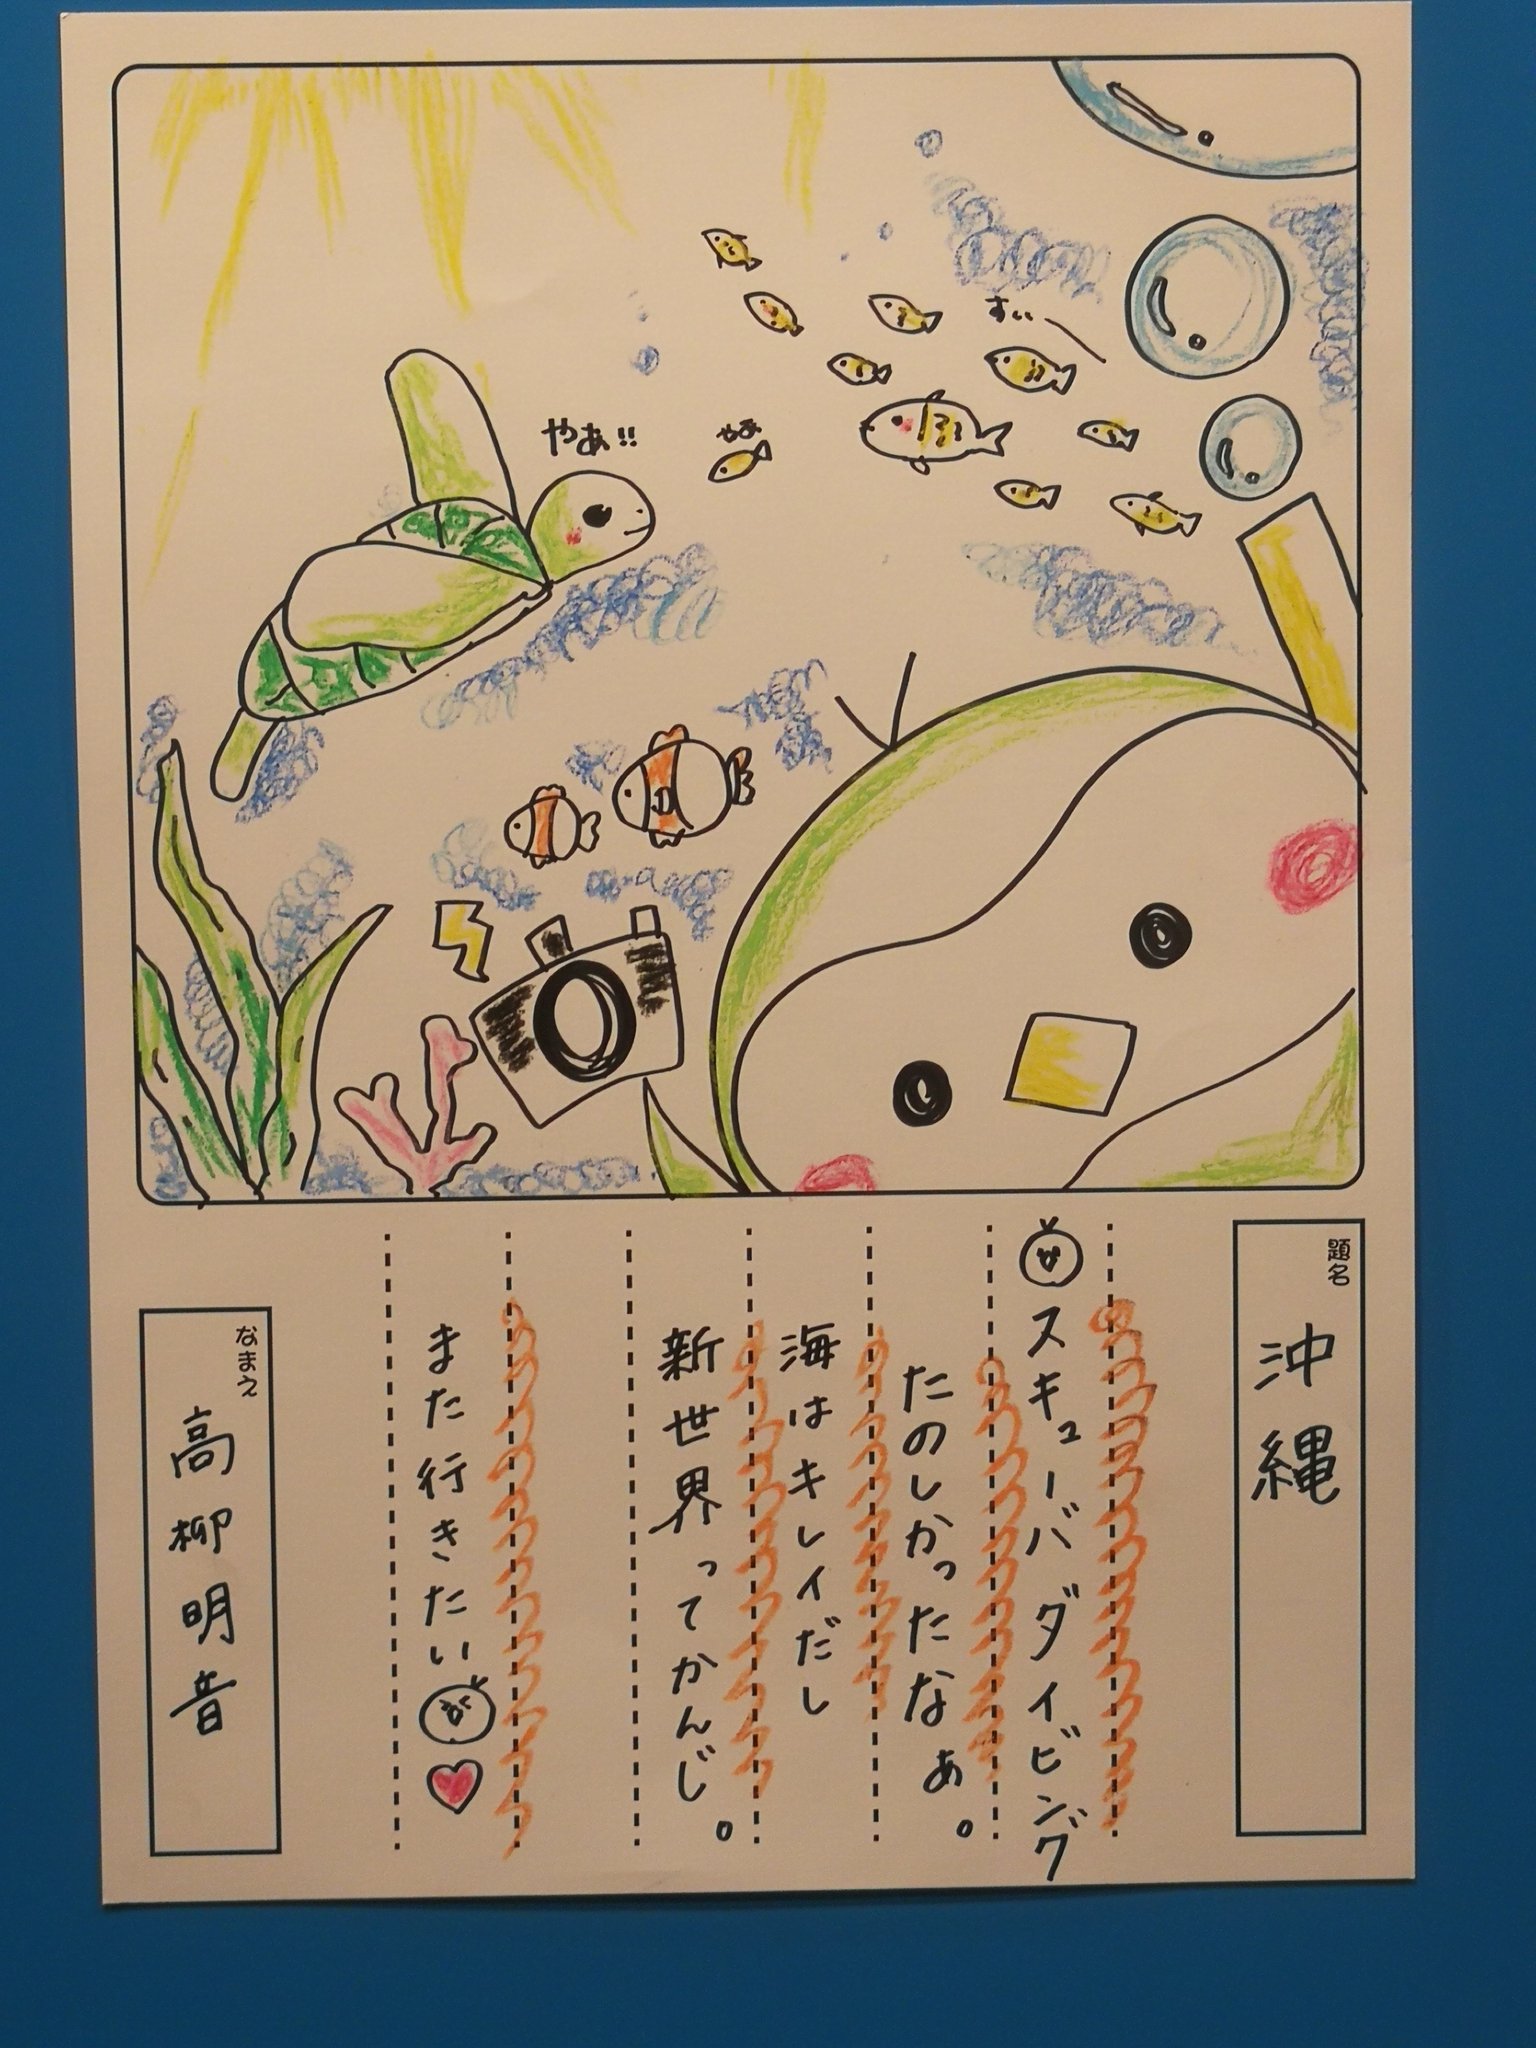 やあ!!
やあ
すいー
題名
沖縄
スキューバダイビング
たのしかったなぁ。
海はキレイだし
新世界ってかんじ。
また行きたい
なまえ
高柳明音